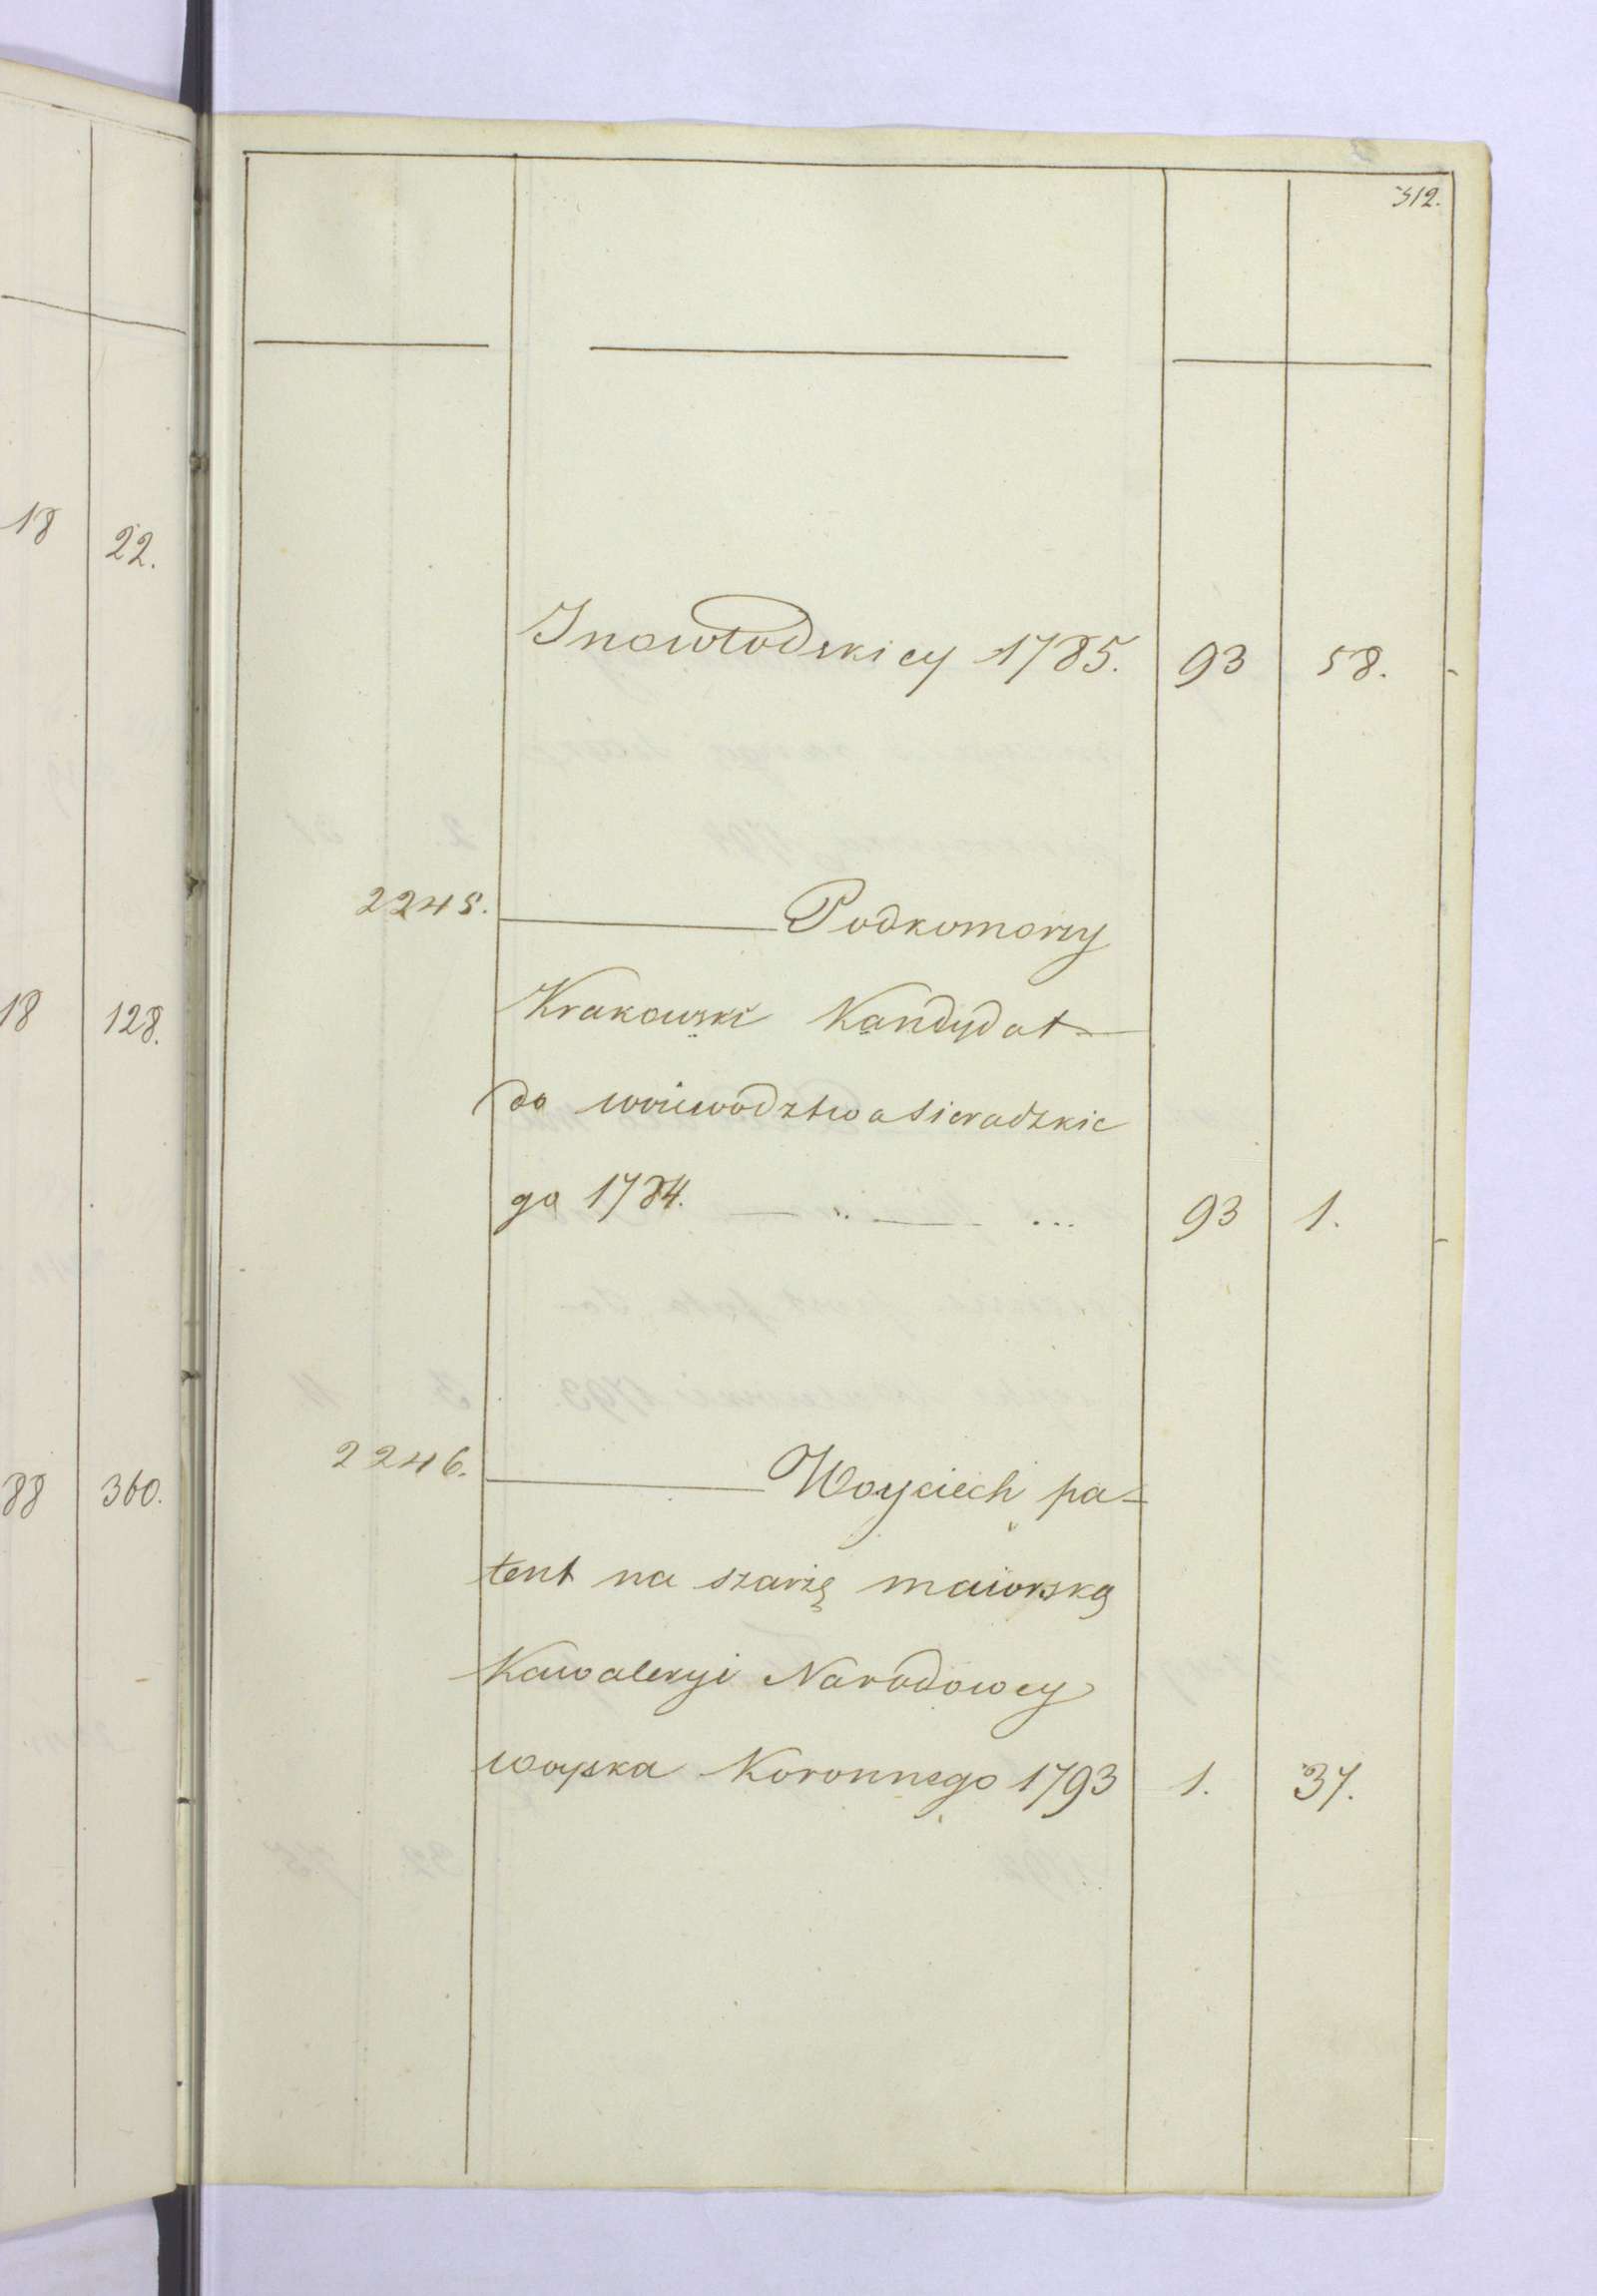 312.
18 22.
Inowłodskiey 1785. 93 58.
2245. Podkomorzy
18 128. Krakowski Kandydat
do woiewodztwa Sieradzkie
go 1784. 93 1.
2246. Woyciech pa-
88 360.
tent na szarżę maiorską
Kawaleryi Narodowey
woyska Koronnego 1793 1. 37.